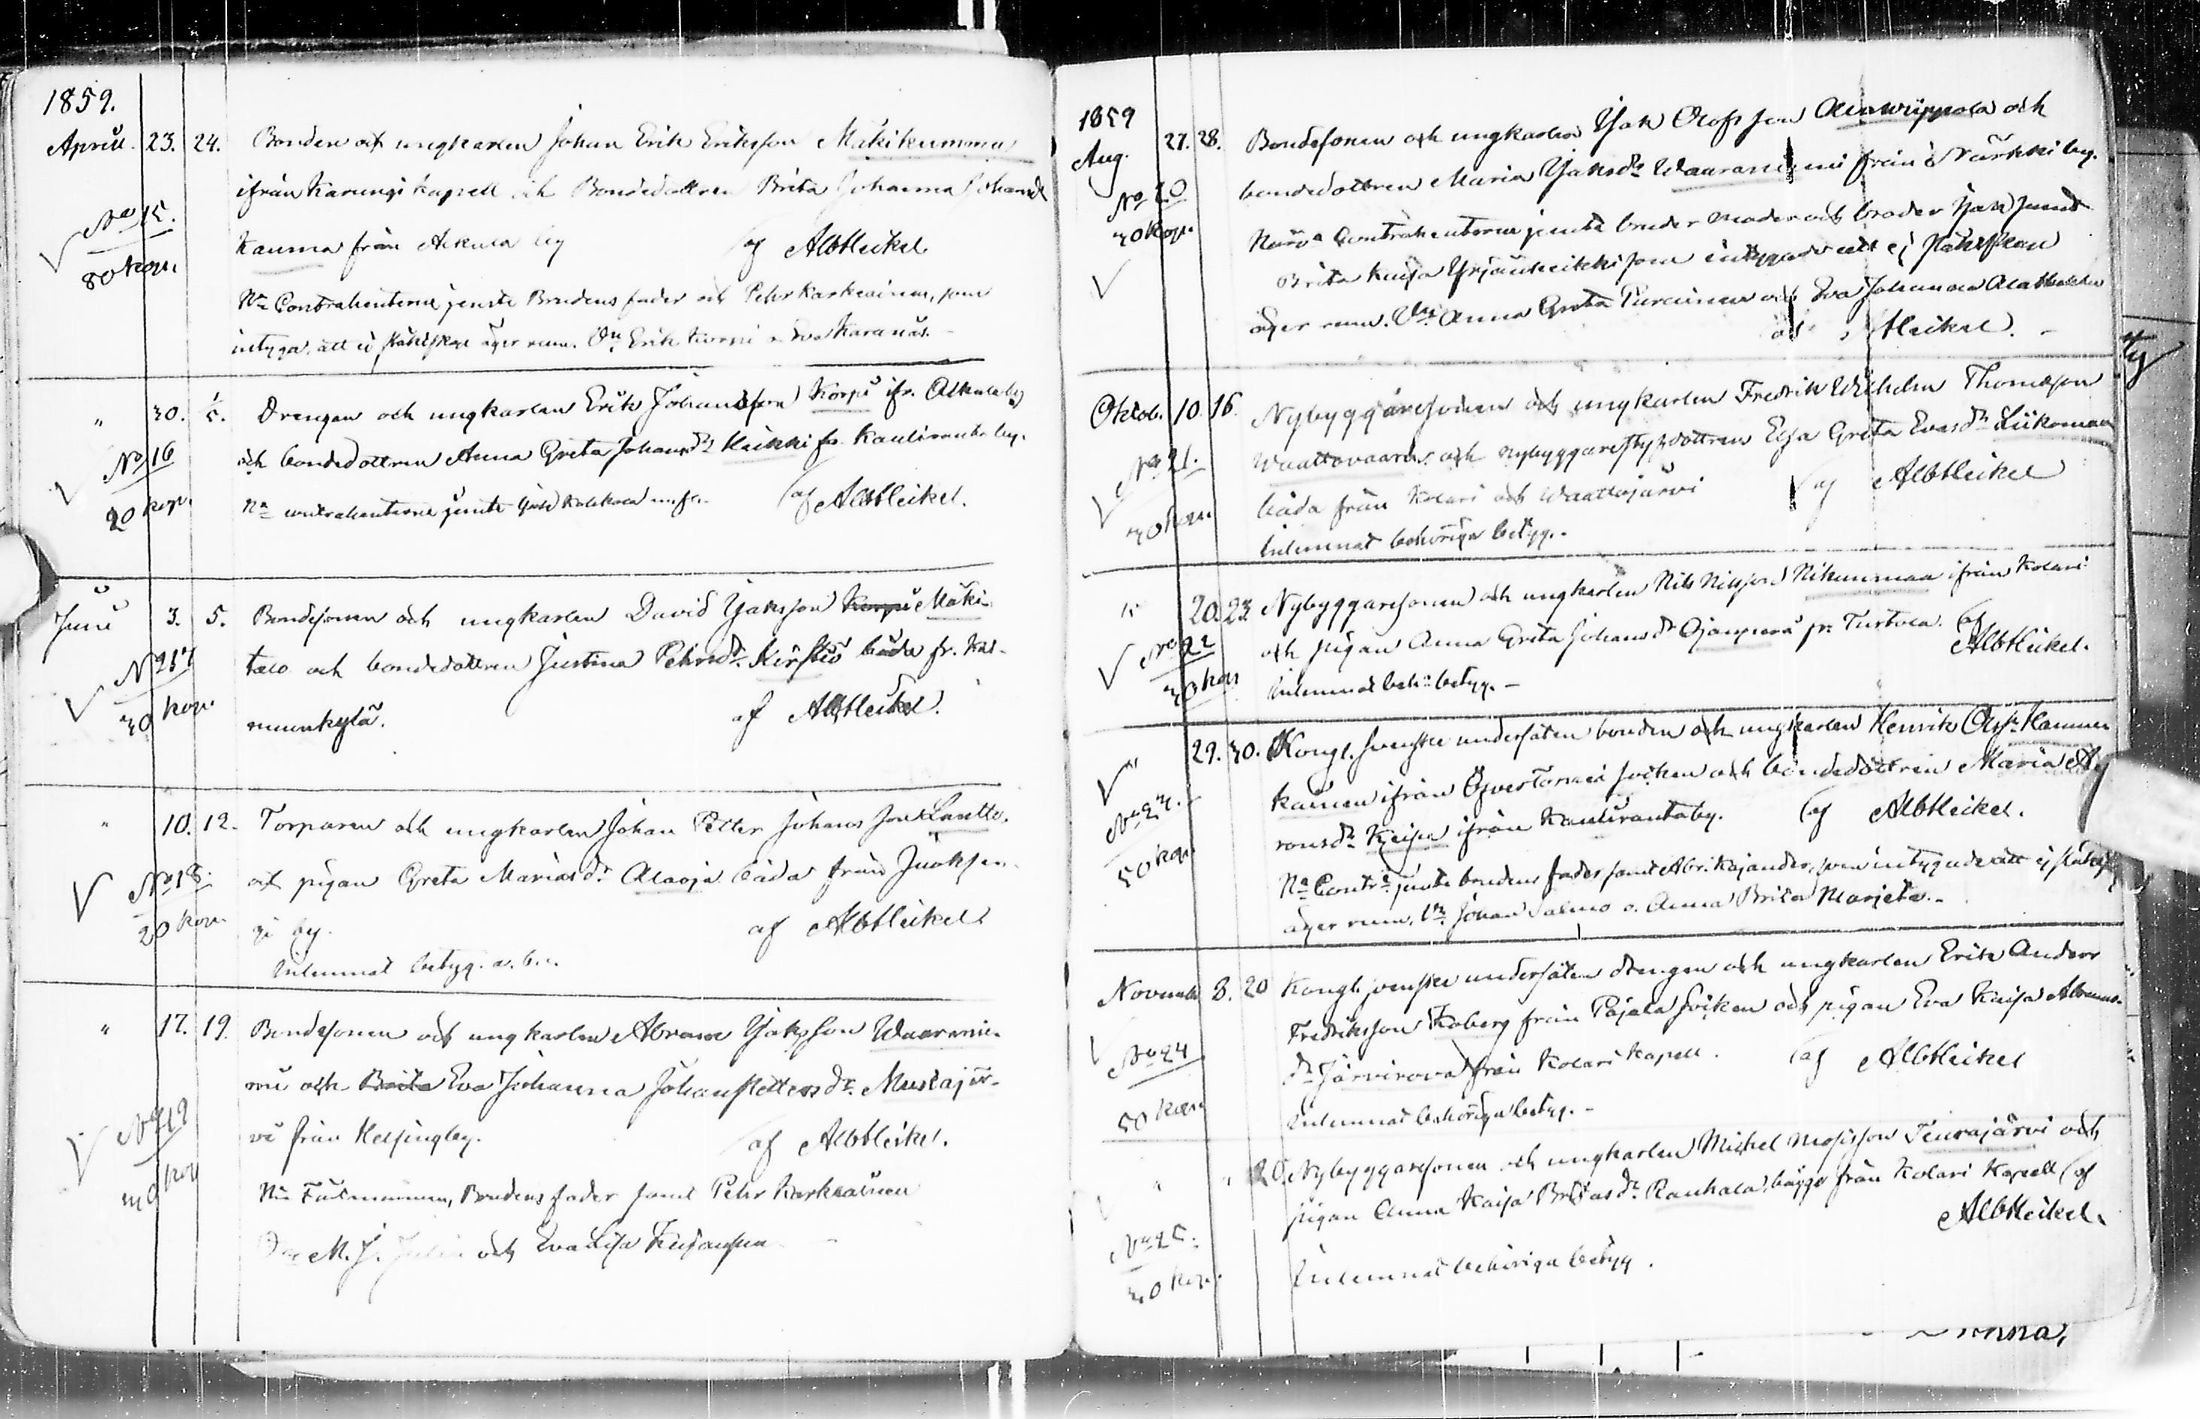 1859.
Aprill 23. 24. Bonden och ungkarlen Johan Erik Eriksson Mäkikumma
ifrån Karungi kapell och Bondedottren Brita Johanna Johansdr
No 15. Kauma från Alkula by af Alb Heikel
80 kop. Nä Contrahenterne jemte Brudens fader och Pehr Karkiainen, som
intyga, att ej skäldskap äger rum. Erik och Eva Karanås.
" 30. 1/5. Drengen och ungkarlen Erik Johansson Korpi ifr. Alkula by
No 16 och bondedottren Anna Greta Johansdr Heikki fr. Kauliranta by.
20 kop. Nä contrahenterne jemte af Alb Heikel.
Juni 3. 5. Bondesonen och ungkarlen David Isaksson Korpi Mäki-
No 17 talo och bondedottren Justina Pehrsdr Kerstis båda fr. Kai-
30 kop. nuunkylä. af Alb Heikel.
" 10. 12. Torparen och ungkarlen Johan Petter Johansson Lantto.
No 18. och pigan Greta Mariasdr Alaoja båda från Juoksen-
20 kop. gi by. af Alb Heikel
Inlemnat betyg.
" 17. 19. Bondesonen och ungkarlen Abram Isaksson Waaranie-
mi och Brita Eva Johanna Johan Pettersdr Mustajär-
No 19 vi från Helsingby. af Alb Heikel.
kop Nä Fästmannen, Brudens fader samt Pehr Karkiainen
M. J. och Eva Lisa
1859
Aug. 27. 28. Bondesonen och ungkarlen Isak Olofsson Alawippola och
No 20 bondedottren Maria Isaksdr Waaraniemi från Närkki by.
30 kop. Närv. Contrahenterne jemte brudens moder och broder Isak samt
Brita Kaisa Yrjänheikki som intygade att ej skäldskap
äger rum. Anna Greta Purainen och Eva Johanna
af Heikel.
Oktob. 10. 16. Nybyggaresonen och ungkarlen Fredrik Wilhelm Thomasson
No 21. Waattovaara och nybyggarestyfdottren Elsa Greta Evasdr Liikamaa
30 kop. båda från Kolari och Waattojärvi af Alb Heikel
Inlemnat behöriga betyg.
" 20. 23. Nybyggaresonen och ungkarlen Nils Nilsson Nikunmaa ifrån Kolari
No 22 och pigan Anna Greta Johansdr Ojanperä fr. Turtola. af
30 kop Inlemnat beh. betyg. Alb Heikel.
" 29. 30. Kongl. svenske undersåten bonden och ungkarlen Henrik Olofss. Hannu-
No 23. kainen ifrån Öfvertorneå socken och bondedottren Maria Aa-
50 kop ronsdr Keisu ifrån Kauliranta by. af Alb Heikel.
Nä Contr. jemte brudens fader samt Abr. Kajander, som intygade att ej skäldsk.
äger rum. Johan Salmo o. Anna Brita Marjeta.
Novemb. 8. 20 Kongl. svenske undersåten drengen och ungkarlen Erik Anders
Fredriksson Koberg från Pajala socken och pigan Eva Kaisa Abrams-
No 24 dr Järvirova från Kolari kapell. af Alb Heikel
50 kop Inlemnat behöriga betyg.
" " 20. Nybyggaresonen och ungkarlen Mickel Mosisson Teurajärvi och
No 25. pigan Anna Kaisa Britasdr Rauhala, bägge från Kolari Kapell af
30 kop. Alb Heikel.
Inlemnat behöriga betyg.